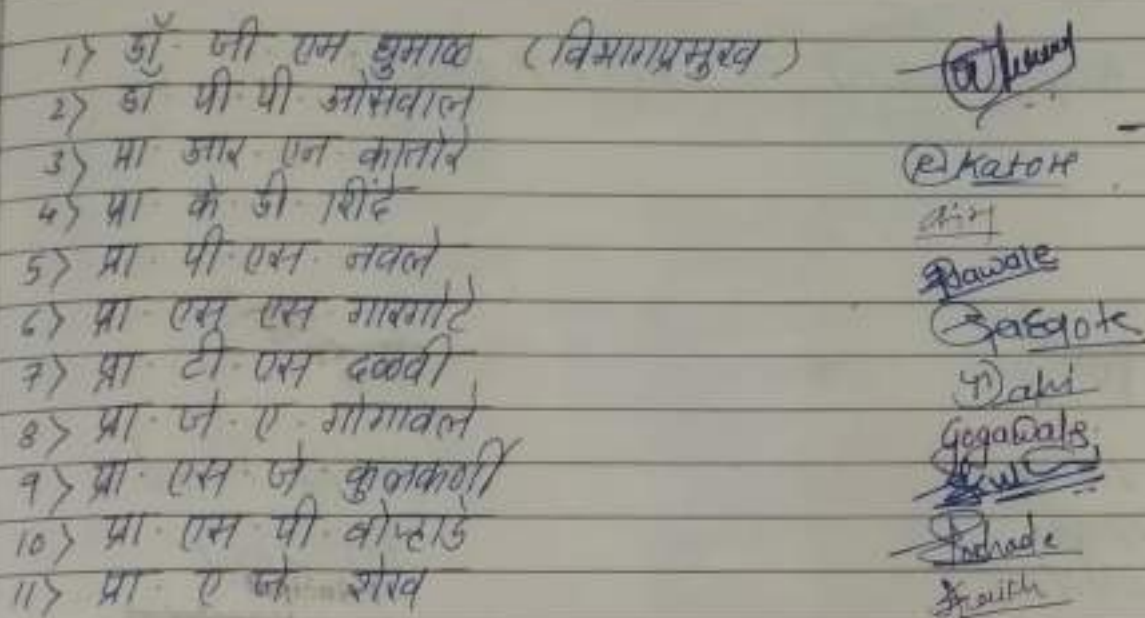 1) डॉ. जी एम धुमाळ (विभागप्रमुख)
2) डॉ पी. पी. ओसवाल
3) प्रा आर. एन कातोरे R Katore
4) प्रा के. डी. शिंदे
5) प्रा. पी. एस. नवले Nawale
6) प्रा. एस एस गारगोटे Gargote
7) प्रा. टी. एस दळवी Dalvi
8) प्रा. जे. ए. गोगावले Gogawale
9) प्रा. एस जे कुलकर्णी
10) प्रा. एस. पी. बोऱ्हाडे
11) प्रा. ए जे शेख Shaikh